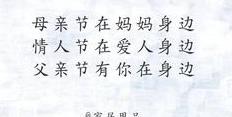 母亲节在妈妈身边
情人节在爱人身边
父亲节有你在身边